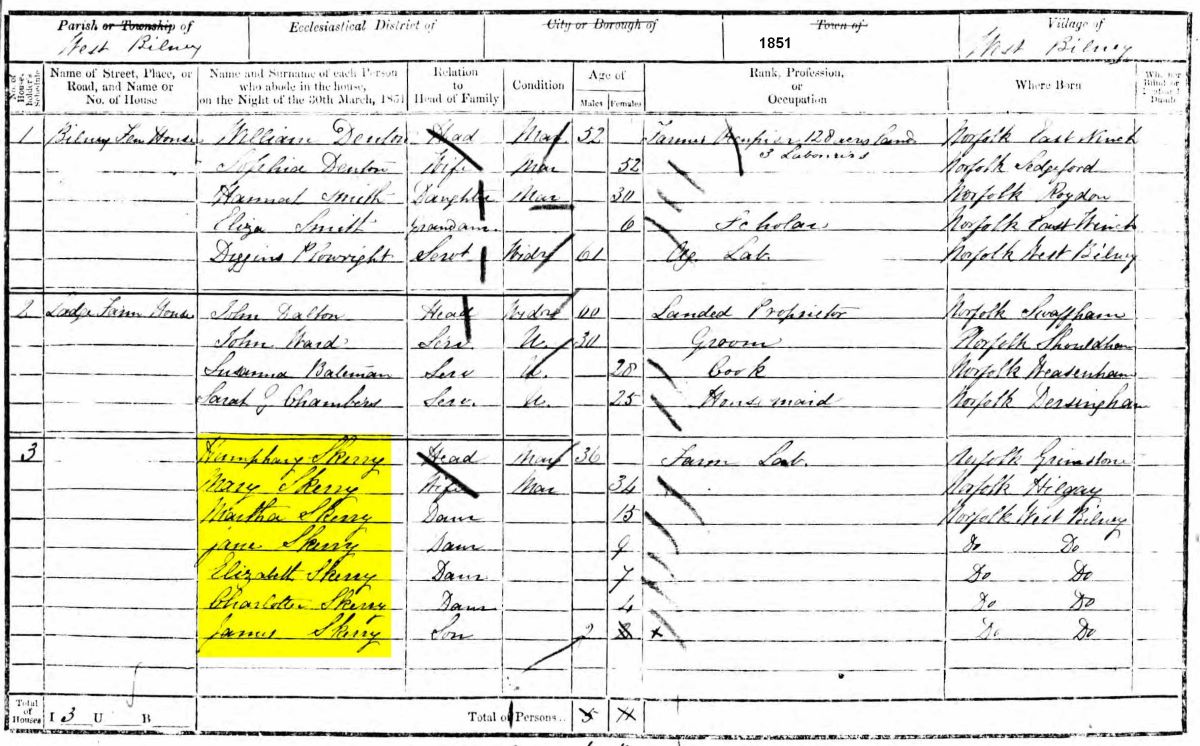 Parish or Township of
West Bilney
Ecclesiastical District of
City or Borough of
Town of
1851
Village of
West Bilney
No. of House-holder's Schedule
Name of Street, Place, or Road, and Name or No. of House
Name and Surname of each Person who abode in the house, on the Night of the 30th March, 1851
Relation to Head of Family
Condition
Age of
Males Females
Rank, Profession, or Occupation
Where Born
1 Bilney Fen House William Denton Head Mar 52 Farmer Occupier 128 acres land Norfolk East Winch
3 Labourers
Denton Wife Mar 52 Norfolk Sedgeford
Hannah Smith Daughter Mar 30 Norfolk Roydon
Eliza Smith Grandaur. 6 Scholar Norfolk East Winch
Diggins Plowright Servt Widr 61 Ag. Lab. Norfolk West Bilney
2 Lodge Farm House John Dalton Head Widr Landed Proprietor Norfolk Swaffham
John Ward Serv U. 30 Groom Norfolk Shouldham
Susanna Bateman Serv U. 28 Cook Norfolk Weasenham
Sarah J Chambers Serv. U. 25 Housemaid Norfolk Dersingham
3 Humphary Skerry Head Mar 36 Farm Lab. Norfolk Grimstone
Mary Skerry Wife Mar 34 Norfolk Hilgay
Martha Skerry Daur 15 Norfolk West Bilney
Jane Skerry Daur 9 Do Do
Elizabeth Skerry Daur 7 Do Do
Charlotte Skerry Daur 4 Do Do
James Skerry Son 2 Do Do
Total of Houses I 3 U B Total of Persons.. 5 11